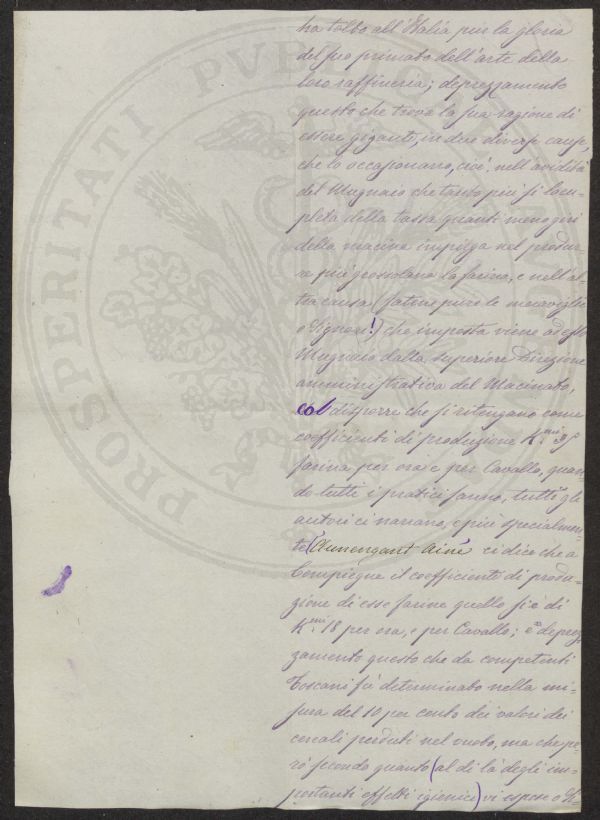 ha tolto all'Italia pur la gloria
del suo primato dell'arte della
loro raffineria; deprezzamento
questo che trova la sua ragione di
essere giganti, in due diverse cause,
che lo occasionano, cioè, nell'avidità
del Mugnaio che tanto più si com-
pleta della tassa quanti meno giri
della macina impiega nel produr-
re più grossolana la farina, e nell'al-
tra causa (fatene pure le meraviglie
o Signori!) che imposta viene ad esso
Mugnaio dalla superiore Direzione
amministrativa del Macinato,
col disporre che si ritengano come
coefficienti di produzione K.mi
farina per ora e per Cavallo, quan-
do tutti i pratici sanno, tutti gli
autori ci narrano, e più specialmen-
te ( Ainé ci dice che a
Compiegne il coefficiente di produ-
zione di esse farine quello si è di
K.mi 18 per ora, e per Cavallo; è deprez
zamento questo che da competenti
Toscani fù determinato nella mi-
sura del 10 per cento dei valori dei
cereali perduti nel vuoto, ma che pe-
rò secondo quanto (al di là degli im-
portanti effetti igienici) vi espose o
PROSPERITATI PVBLICAE AVGENDAE